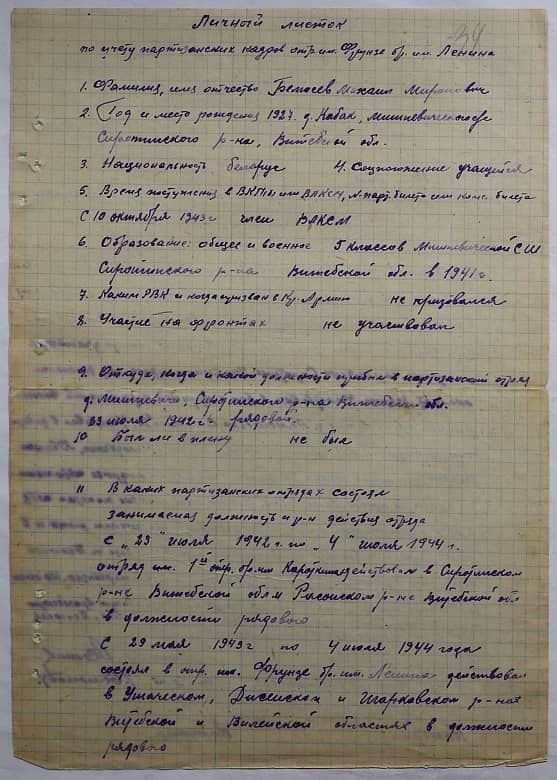 Личный листок
39
по учету партизанских кадров отр. им. Фрунзе бр. им. Ленина
1. Фамилия, имя отчество Белосев Михаил Миронович
2. Год и место рождения 1927. д. Кабак, Мишневического с/с
Сиротинского р-на, Витебской обл.
3. Национальность беларус 4. Соцположение учащейся
5. Время поступления в ВКП(б) или ВЛКСМ, № парт. билета или комс. билета
С 10 октября 1943 г член ВЛКСМ
6. Образование: общее и военное 5 классов Мишневической СШ
Сиротинского р-на Витебской обл. в 1941 г.
7. Каким РВК и когда призван в Кр. Армию не призывался
8. Участие на фронтах не участвовал
9. Откуда, когда и какой должности прибыл в партизанский отряд
д. Мишневичи, Сиротинского р-на Витебской обл.
23 июля 1942 г. рядовой.
10 Был ли в плену не был
11 В каких партизанских отрядах состоял
занимаемая должность и р-н действия отряда
С "23" июля 1942 г. по "4" июля 1944 г.
отряд им. 1ый отр. бр. им Короткина действовал в Сиротинском
р-не Витебской обл и Россонском р-не Витебской обл
в должности рядового
С 29 мая 1943 г по 4 июля 1944 года
состоял в отр. им. Фрунзе бр. им. Ленина действовал
в Ушачском, Дисненском и Шарковском р-нах
Витебской и Вилейской областях в должности
рядового